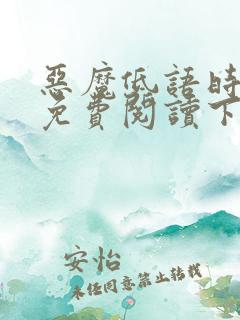 惡魔低語時
免費閱讀下
安怡
未經同意禁止轉載